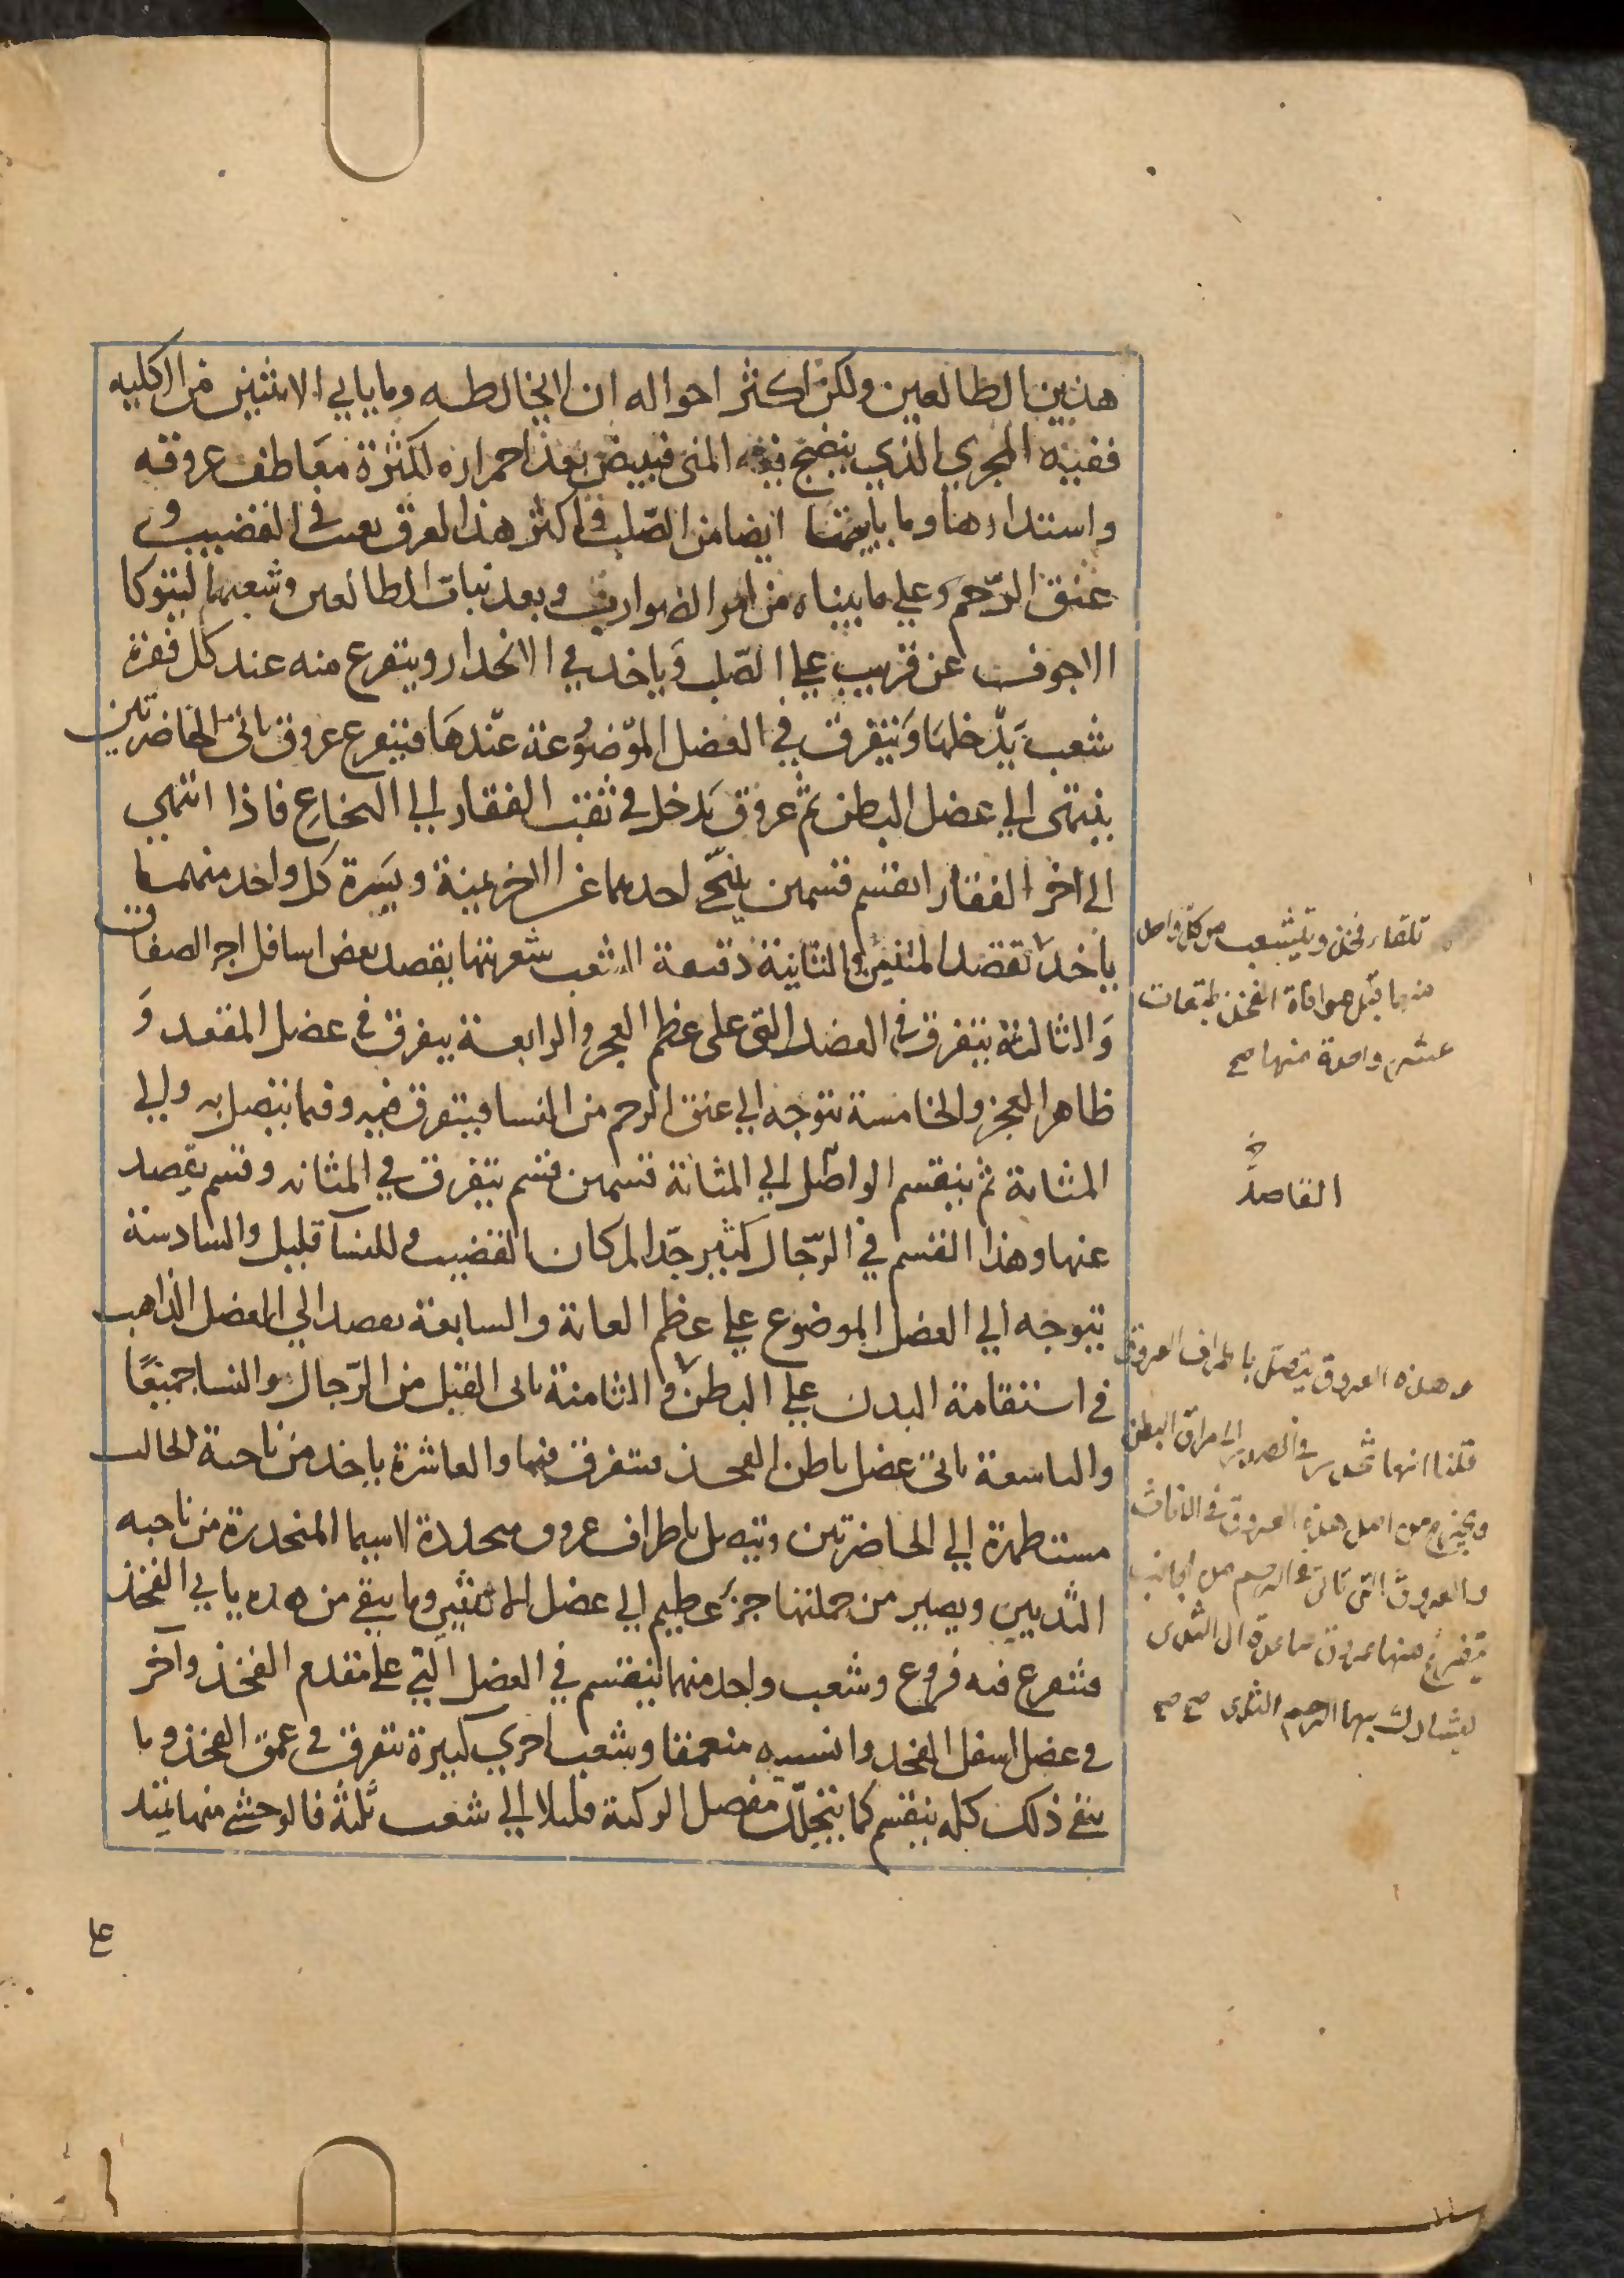 هذين الطالعين ولكن اكثر احواله ان لا يخالطه وما ياتي الانثيين من الكليه
ففيه المجري الذي ينضج فيه المني فيبيض بعد احمراره لكثرة معاطف عروقه
واستدارهنا وما ياتيهما ايضا من الصلب واكثر هذا العرق يغيب في القضيب و
عنق الرحم وعلي ما بيناه من امر الضوارب وبعد نبات الطالعين وشعبهما ليتوكا
الاجوف عن قريب علي الصلب وياخد في الانحدار ويتفرع منه عند كل فقرة
شعب يدخلها ويتفرق في العضل الموضوعة عندها فيتفرع عروق ياتي الخاضرتين
ينتهي الي عضل البطن ثم عروق يدخل في ثقب الفقار الي النخاع فاذا انتهي
الي اخر الفقار انقسم قسمين يتنحي احدهما عن الاخر يمنة ويسرة كل واحد منهما
ياخد تقصد المتنين والثانية دقيقة الشعب شعريتها يقصد بعض اسافل اجزا الصفاق
والثالثة يتفرق في العضل التي على عظم العجز والرابعة يتفرق في عضل المقعد و
ظاهر العجز والخامسة تتوجه الي عنق الرحم من النسا فيتفرق فيه وفيما يتصل به والي
المثانة ثم ينقسم الواصل الي المثانة قسمين قسم يتفرق في المثانه وقسم يقصد
عنها وهذا القسم في الرجال كثير جدا لمكان القضيب وللنسآ قليل والسادسة
تتوجه الي العضل الموضوع علي عظم العانة والسابعة تصعد الي العضل الذاهب
في استقامة البدن علي البطن والثامنة تاتي القبل من الرجال والنسا جميعا
والتاسعة تاتي عضل باطن الفخذ فيتفرق فيها والعاشرة ياخد من ناحية الحالب
مستظهرة الي الخاضرتين وتتصل باطراف عروق منحدرة لاسيما المنحدرة من ناحيه
الثديين ويصير من جملتها جزء عظيم الي عضل الانثيين وما يبقي من هذه ياتي الفخذ
فيتفرع فيه فروع وشعب واحد منهما ينقسم في العضل التي علي مقدم الفخذ وآخر
في عضل اسفل الفخد وانسيه متعمقا وشعب اخري كبيرة تتفرق في عمق الفخذ وما
يبقي ذلك كله ينقسم كما يتحلل مفصل الركبة قليلا الي شعب ثلثة فالوحشي منها يمتد
علي
تلقاء فخذ ويتشعب من كل واحد
منهما قبل موافاة الفخذ طبقات
عشر واحدة منها صح
القاصدة
وهذه العروق يتصل باطراف العروق
قلنا انها تنحدر في الصدر الى مراق البطن
ويخرج من اصل هذه العروق في الاناث
والعروق التي تاتي الرحم من الجانب
يتفرع منها عروق صاعدة الى الثدي
ليشارك بها الرحم الثدي صح صح